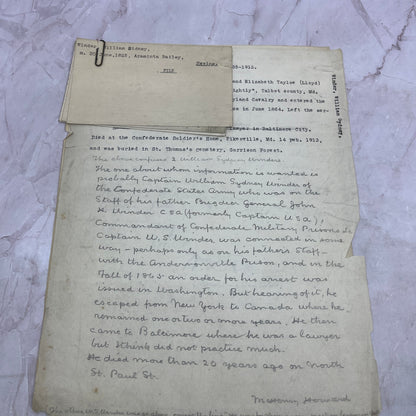 Winder, William Sidney,
m. 20 June, 1818, Araminta Bailey,
FILE
Winder, William Sydney,
-1912.
and Elizabeth Tayloe (Lloyd)
Talbot county, Md.
Cavalry and entered the
in June 1864. Left the
in Baltimore City.
Died at the Confederate Soldier's Home, Pikesville, Md. 14 Feb. 1912,
and was buried in St. Thomas's cemetery, Garrison Forest.
The above confuses 2 William Sydney Winders.
The one about whom information is wanted is
probably Captain William Sydney Winder of
the Confederate States Army who was on the
Staff of his father Brigdier General John
H. Winder C S A (formerly Captain U S A),
Commandant of Confederate Military Prisons
Captain W. S. Winder was connected in some
way – perhaps only as on his father's Staff –
with the Andersonville Prison, and in the
Fall of 1865 an order for his arrest was
issued in Washington. But hearing of it, he
escaped from New York to Canada where he
remained one or two or more years. He then
came to Baltimore where he was a lawyer
but I think did not practice much.
He died more than 20 years ago on North
St. Paul St.
McHenry Howard